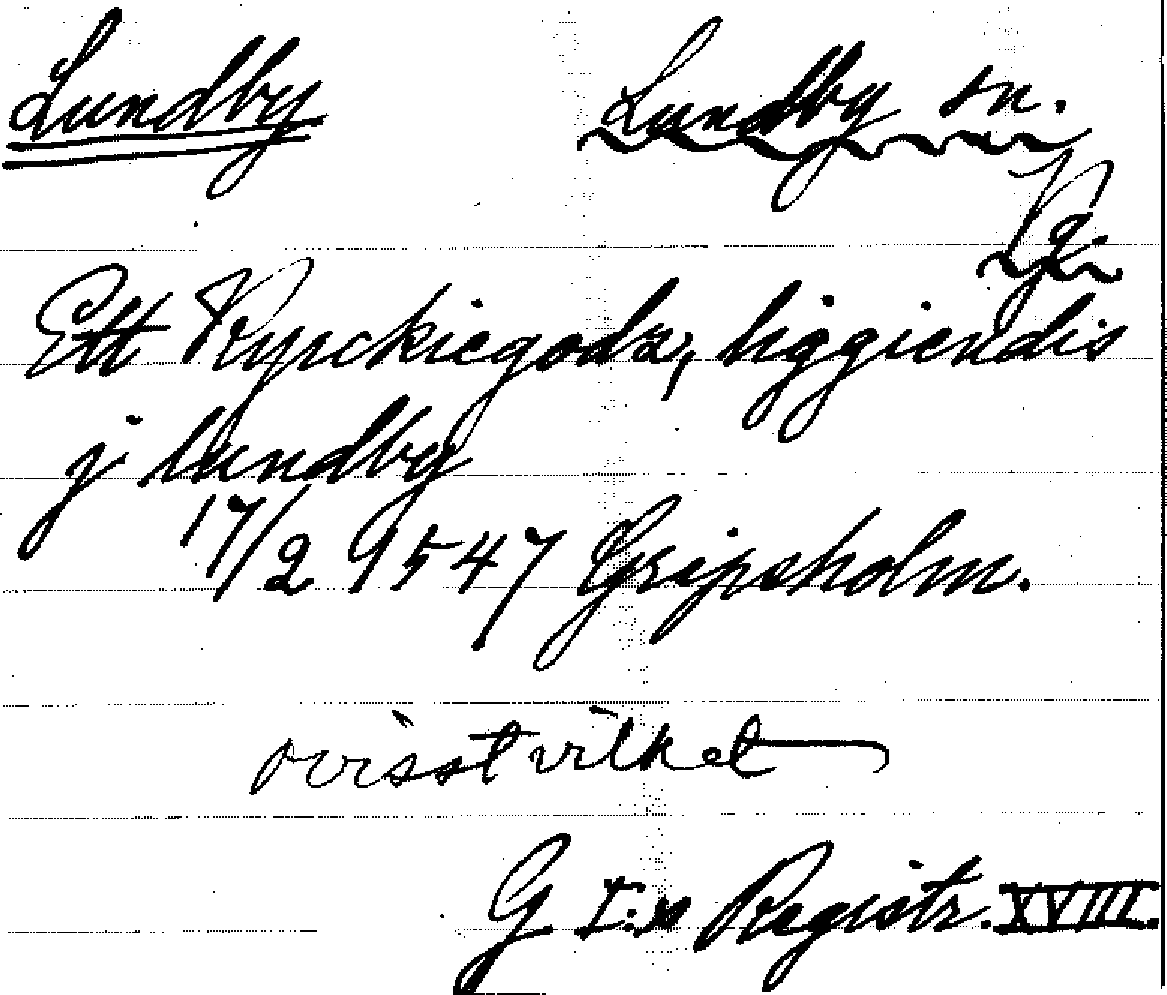 Lundby Lundby sn.
Ett Kyrckiegodz, liggiendis
j lundby
17/2 1547 Gripsholm.
ovisst vilket
G I:s Registr. XVIII.